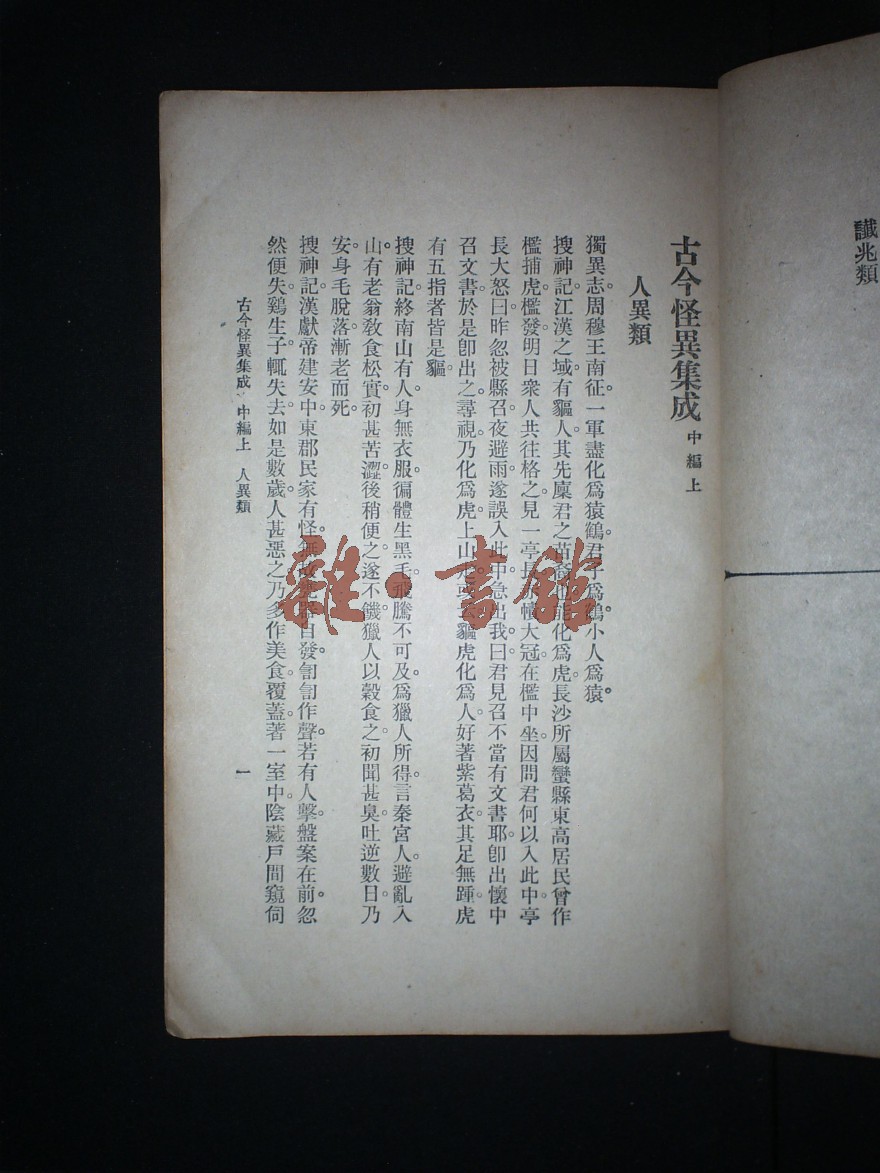 讖兆類
古今怪異集成 中編上
人異類
獨異志周穆王南征。一軍盡化爲猿鶴。君子爲鶴。小人爲猿。
搜神記江漢之域。有貙人。其先廩君之苗裔也。能化爲虎。長沙所屬蠻縣東高居民曾作
檻捕虎。檻發。明日衆人共往格之。見一亭長赤幘大冠。在檻中坐。因問君何以入此中。亭
長大怒曰。昨忽被縣召。夜避雨。遂誤入此中。急出我。曰。君見召不當有文書耶。卽出懷中
召文書。於是卽出之。尋視。乃化爲虎上山走。或云貙虎化爲人。好著紫葛衣。其足無踵。虎
有五指者皆是貙。
搜神記終南山有人。身無衣服。徧體生黑毛。飛騰不可及。爲獵人所得。言秦宮人。避亂入
山。有老翁敎食松實。初甚苦澀。後稍便之。遂不饑。獵人以穀食之。初聞甚臭。吐逆數日乃
安。身毛脫落。漸老而死。
搜神記漢獻帝建安中。東郡民家有怪。無故甕器自發。訇訇作聲。若有人擊。盤案在前。忽
然便失。鷄生子輒失去。如是數歲。人甚惡之。乃多作美食。覆蓋著一室中。陰藏戶間窺伺
古今怪異集成 中編上 人異類
一
雜·書館